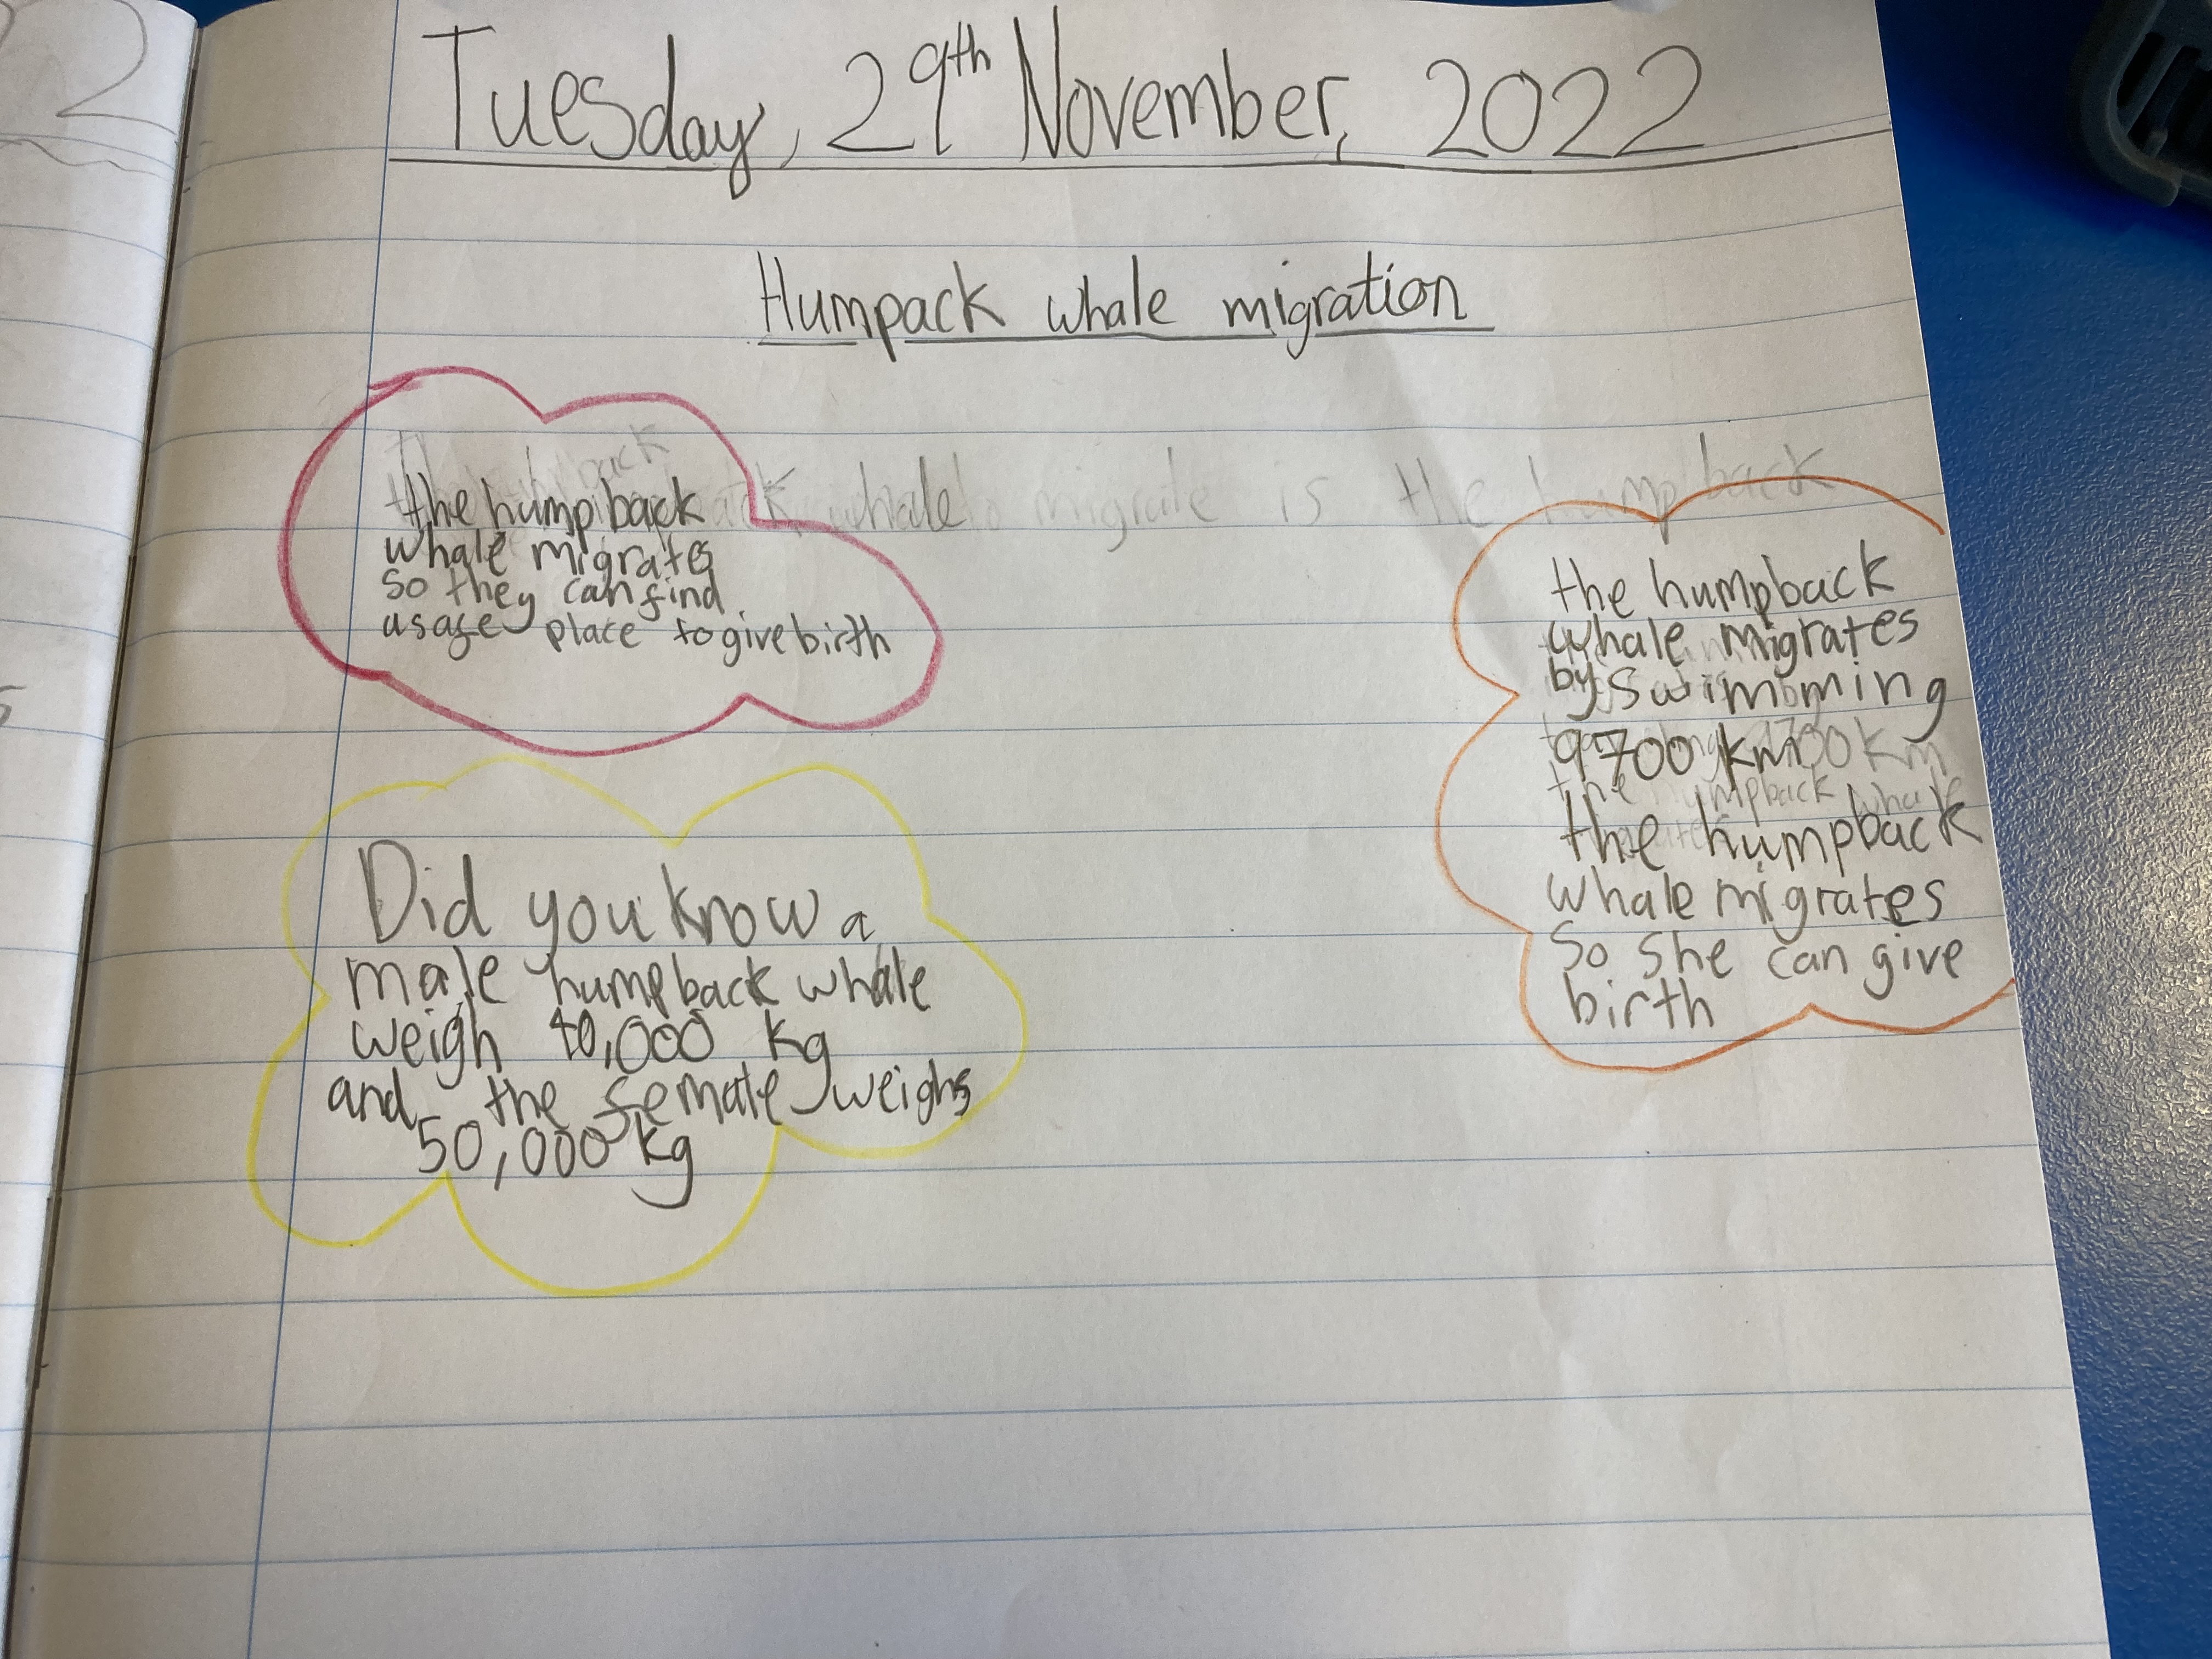 Tuesday, 29th November, 2022
Humpack whale migration
the humpback
whale migrates
so they can find
a safe place to give birth
whale migrate is the humpback
the humpback
whale migrates
by swimming
9700 km
the humpback
whale migrates
So she can give
birth
Did you know a
male humpback whale
weigh 40,000 kg
and the female weighs
50,000 kg